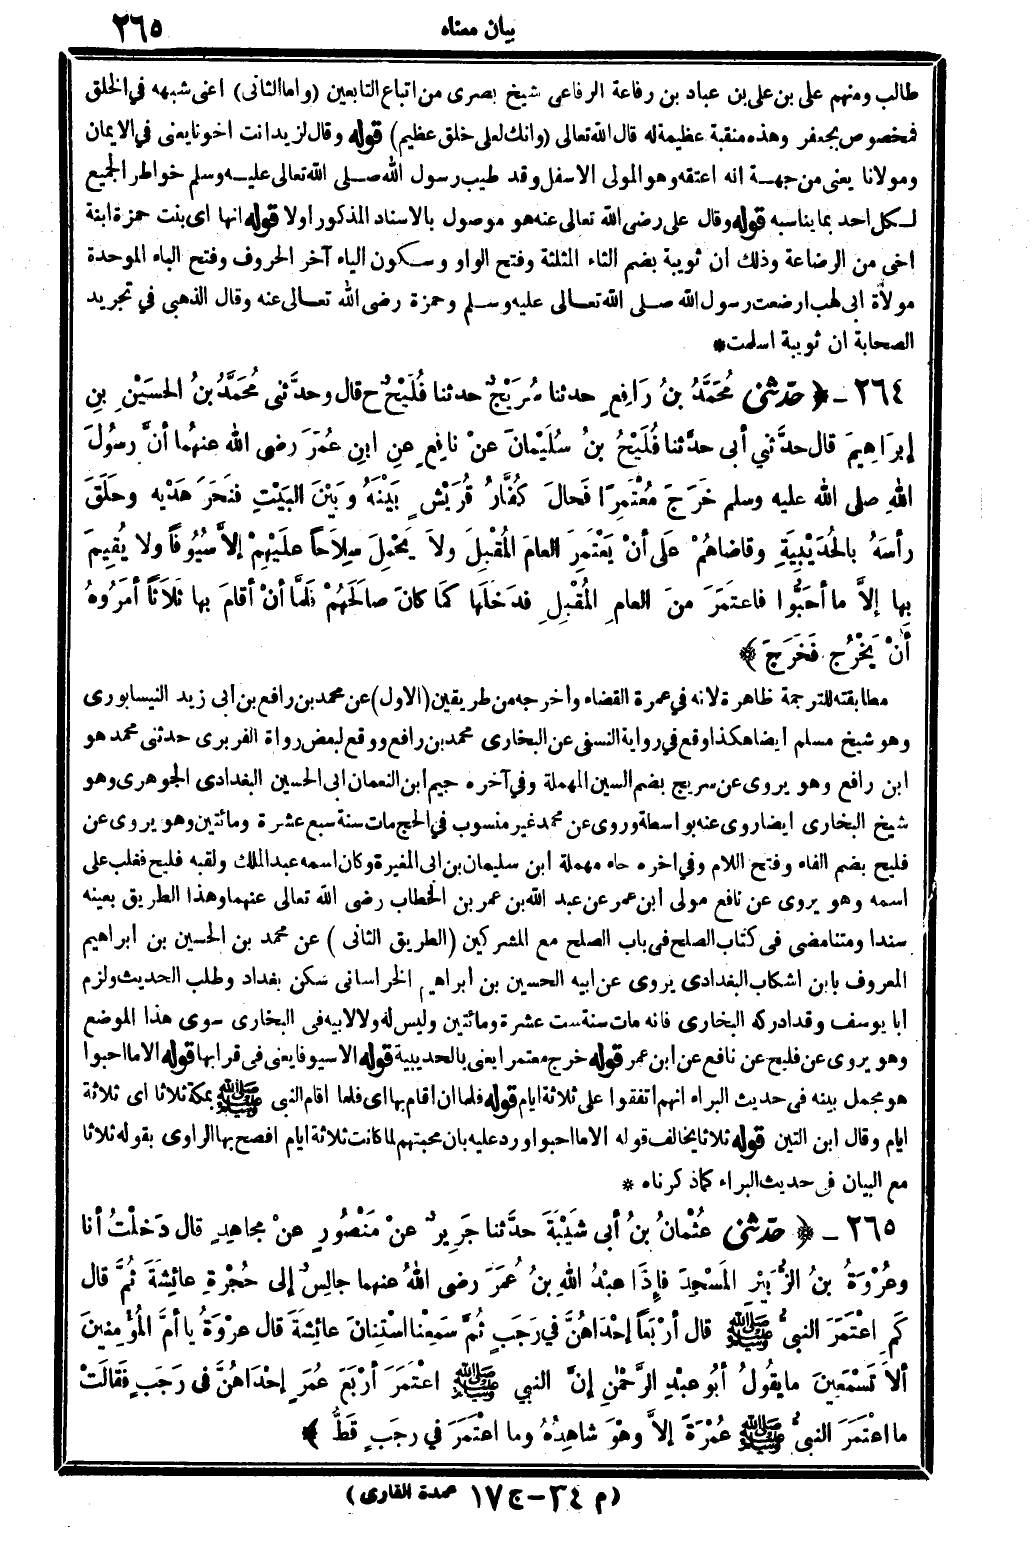 بيان معناه
٢٦٥
طالب ومنهم على بن على بن عباد بن رفاعة الرفاعى شيخ بصرى من اتباع التابعين (واما الثانى) اعنى شبهه في الخلق
فمخصوص بجعفر وهذه منقبة عظيمة له قال الله تعالى (وانك لعلى خلق عظيم) قوله وقال لزيد انت اخونا يعنى في الايمان
ومولانا يعنى من جهة انه اعتقه وهو المولى الاسفل وقد طيب رسول الله صلى الله تعالى عليه وسلم خواطر الجميع
لكل احد بما يناسبه قوله وقال على رضى الله تعالى عنه هو موصول بالاسناد المذكور اولا قوله انها اى بنت حمزة ابنة
اخى من الرضاعة وذلك ان ثويبة بضم الثاء المثلثة وفتح الواو وسكون الياء آخر الحروف وفتح الباء الموحدة
مولاة ابى لهب ارضعت رسول الله صلى الله تعالى عليه وسلم وحمزة رضى الله تعالى عنه وقال الذهبى في تجريد
الصحابة ان ثويبة اسلمت*
٢٦٤ - ﴿ حدثني مُحَمَّدُ بنُ رَافِعٍ حدثنا سُرَيْجٌ حدثنا فُلَيْحٌ ح قال وحدَّثني مُحَمَّدُ بنُ الحُسَيْنِ بنِ
إبرَاهِيمَ قال حدَّثني أبى حدَّثنا فُلَيْحُ بنُ سُلَيْمَانَ عنْ نافِعٍ عنِ ابنِ عُمَرَ رضى الله عنهُما أنَّ رسُولَ
اللهِ صلى الله عليه وسلم خَرَجَ مُعْتَمِرًا فَحالَ كُفَّارُ قُرَيْشٍ بَيْنَهُ وبَيْنَ البَيْتِ فنَحَرَ هَدْيهِ وحَلَقَ
رأسَهُ بالحُدَيْبِيَةِ وقاضاهُمْ عَلى أنْ يَعْتَمِرَ العامَ المُقْبِلَ ولاَ يَحْمِلَ سِلاَحاً علَيْهِمْ إلاَّ سُيُوفاً ولا يُقِيمَ
بِها إلاَّ ما أحَبُّوا فاعتَمَرَ منَ العامِ المُقْبِلِ فدَخَلَها كَمَا كانَ صالَحَهُمْ فَلمَّا أنْ أقامَ بها ثَلاَثاً أمَرُوهُ
أنْ يَخْرُجَ فَخَرَجَ ﴾
مطابقته للترجمة ظاهرة لانه في عمرة القضاء واخرجه من طريقين (الاول) عن محمد بن رافع بن ابى زيد النيسابورى
وهو شيخ مسلم ايضا هكذا وقع في رواية النسفى عن البخارى محمد بن رافع ووقع لبعض رواة الفربرى حدثنى محمد هو
ابن رافع وهو يروى عن سريج بضم السين المهملة وفي آخره جيم ابن النعمان ابى الحسين البغدادى الجوهرى وهو
شيخ البخارى ايضا روى عنه بواسطة وروى عن محمد غير منسوب في الحج مات سنة سبع عشرة ومائتين وهو يروى عن
فليح بضم الفاء وفتح اللام وفي اخره حاء مهملة ابن سليمان بن ابى المغيرة وكان اسمه عبد الملك ولقبه فليح فغلب على
اسمه وهو يروى عن نافع مولى ابن عمر عن عبد الله بن عمر بن الخطاب رضى الله تعالى عنهما وهذا الطريق بعينه
سندا ومتنا مضى فى كتاب الصلح فى باب الصلح مع المشركين (الطريق الثانى) عن محمد بن الحسين بن ابراهيم
المعروف بابن اشكاب البغدادى يروى عن ابيه الحسين بن ابراهيم الخراسانى سكن بغداد وطلب الحديث ولزم
ابا يوسف وقد ادركه البخارى فانه مات سنة ست عشرة ومائتين وليس له ولا لابيه فى البخارى سوى هذا الموضع
وهو يروى عن فليح عن نافع عن ابن عمر قوله خرج معتمرا يعنى بالحديبية قوله الا سيوفا يعنى فى قرابها قوله الا ما احبوا
هو مجمل بينه فى حديث البراء انهم اتفقوا على ثلاثة ايام قوله فلما ان اقام بها اى فلما اقام النبى ﷺ بمكة ثلاثا اى ثلاثة
ايام وقال ابن التين قوله ثلاثا يخالف قوله الا ما احبوا ورد عليه بان محبتهم لما كانت ثلاثة ايام افصح بها الراوى بقوله ثلاثا
مع البيان فى حديث البراء كما ذكرناه *
٢٦٥ - ﴿ حدثني عُثْمانُ بنُ أبى شَيْبَةَ حدَّثنا جَرِيرٌ عنْ مَنْصُورٍ عنْ مجاهِدٍ قال دَخلْتُ أنا
وعُرْوَةُ بنُ الزُّبَيْرِ المَسْجِدَ فإذَا عبْدُ اللهِ بنُ عُمَرَ رضى اللهُ عنهما جالِسٌ إلى حُجْرَةِ عائِشَةَ ثُمَّ قال
كَمِ اعتَمَرَ النبىُّ ﷺ قال أرْبَعاً إحْدَاهُنَّ في رَجَبٍ ثُمَّ سَمِعْنا اسْتِنانَ عائِشَةَ قال عرْوَةُ يا أمَّ المُؤْمِنِينَ
ألاَ تَسْمَعِينَ ما يقُولُ أبُو عبْدِ الرَّحْمٰنِ إنَّ النبي ﷺ اعْتَمَرَ أرْبَعَ عُمَرٍ إحْدَاهُنَّ فى رَجَبٍ فَقالَتْ
ما اعْتَمَرَ النبىُّ ﷺ عُمْرَةً إلاَّ وهْوَ شاهِدُهُ وما اعْتَمَرَ في رجَبٍ قَطُّ ﴾
(م ٣٤ - ج ١٧ عمدة القارى)